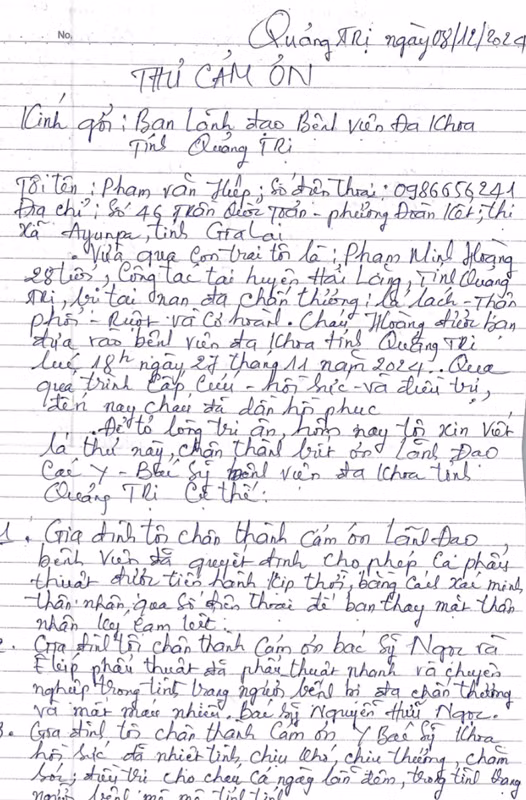 No.
Quảng Trị ngày 08/12/2024
THƯ CẢM ƠN
Kính gởi: Ban Lãnh đạo Bệnh viện Đa khoa
Tỉnh Quảng Trị
Tôi tên: Phạm văn Hiệp; Số điện thoại: 0986656241
Địa chỉ: Số 46 Trần Quốc Toản - phường Đoàn Kết; thị
xã Ayunpa, tỉnh Gia Lai
Vừa qua con trai tôi là: Phạm Minh Hoàng
28 tuổi, Công tác tại huyện Hải Lăng, Tỉnh Quảng
Trị, bị tai nạn đa chấn thương: lá lách - Thận
phổi - Ruột và Cơ hoành. Cháu Hoàng được bạn
đưa vào bệnh viện đa khoa tỉnh Quảng Trị
lúc 18h ngày 27 tháng 11 năm 2024. Qua
quá trình Cấp Cứu - hồi sức - và điều trị,
đến nay cháu đã dần hồi phục
Để tỏ lòng tri ân, hôm nay tôi xin viết
lá thư này, chân thành biết ơn Lãnh Đạo
Các Y - Bác Sỹ bệnh viện đa khoa tỉnh
Quảng Trị Cụ thể:
1. Gia đình tôi chân thành Cám ơn Lãnh Đạo
bệnh viện đã quyết định cho phép Ca phẫu
thuật được tiến hành kịp thời, bằng cách xác minh
thân nhân, qua số điện thoại để bạn thay mặt thân
nhân ký cam kết.
2. Gia đình tôi chân thành Cám ơn bác sỹ Ngọc và
Ekip phẫu thuật đã phẫu thuật nhanh và chuyên
nghiệp trong tình trạng người bệnh bị đa chấn thương
và mất máu nhiều. bác sỹ Nguyễn Hữu Ngọc.
3. Gia đình tôi chân thành Cám ơn Y Bác Sỹ Khoa
hồi sức đã nhiệt tình, chịu khó, chịu thương, chăm
sóc, điều trị cho cháu cả ngày lẫn đêm, trong tình trạng
người bệnh mê mê tỉnh tỉnh